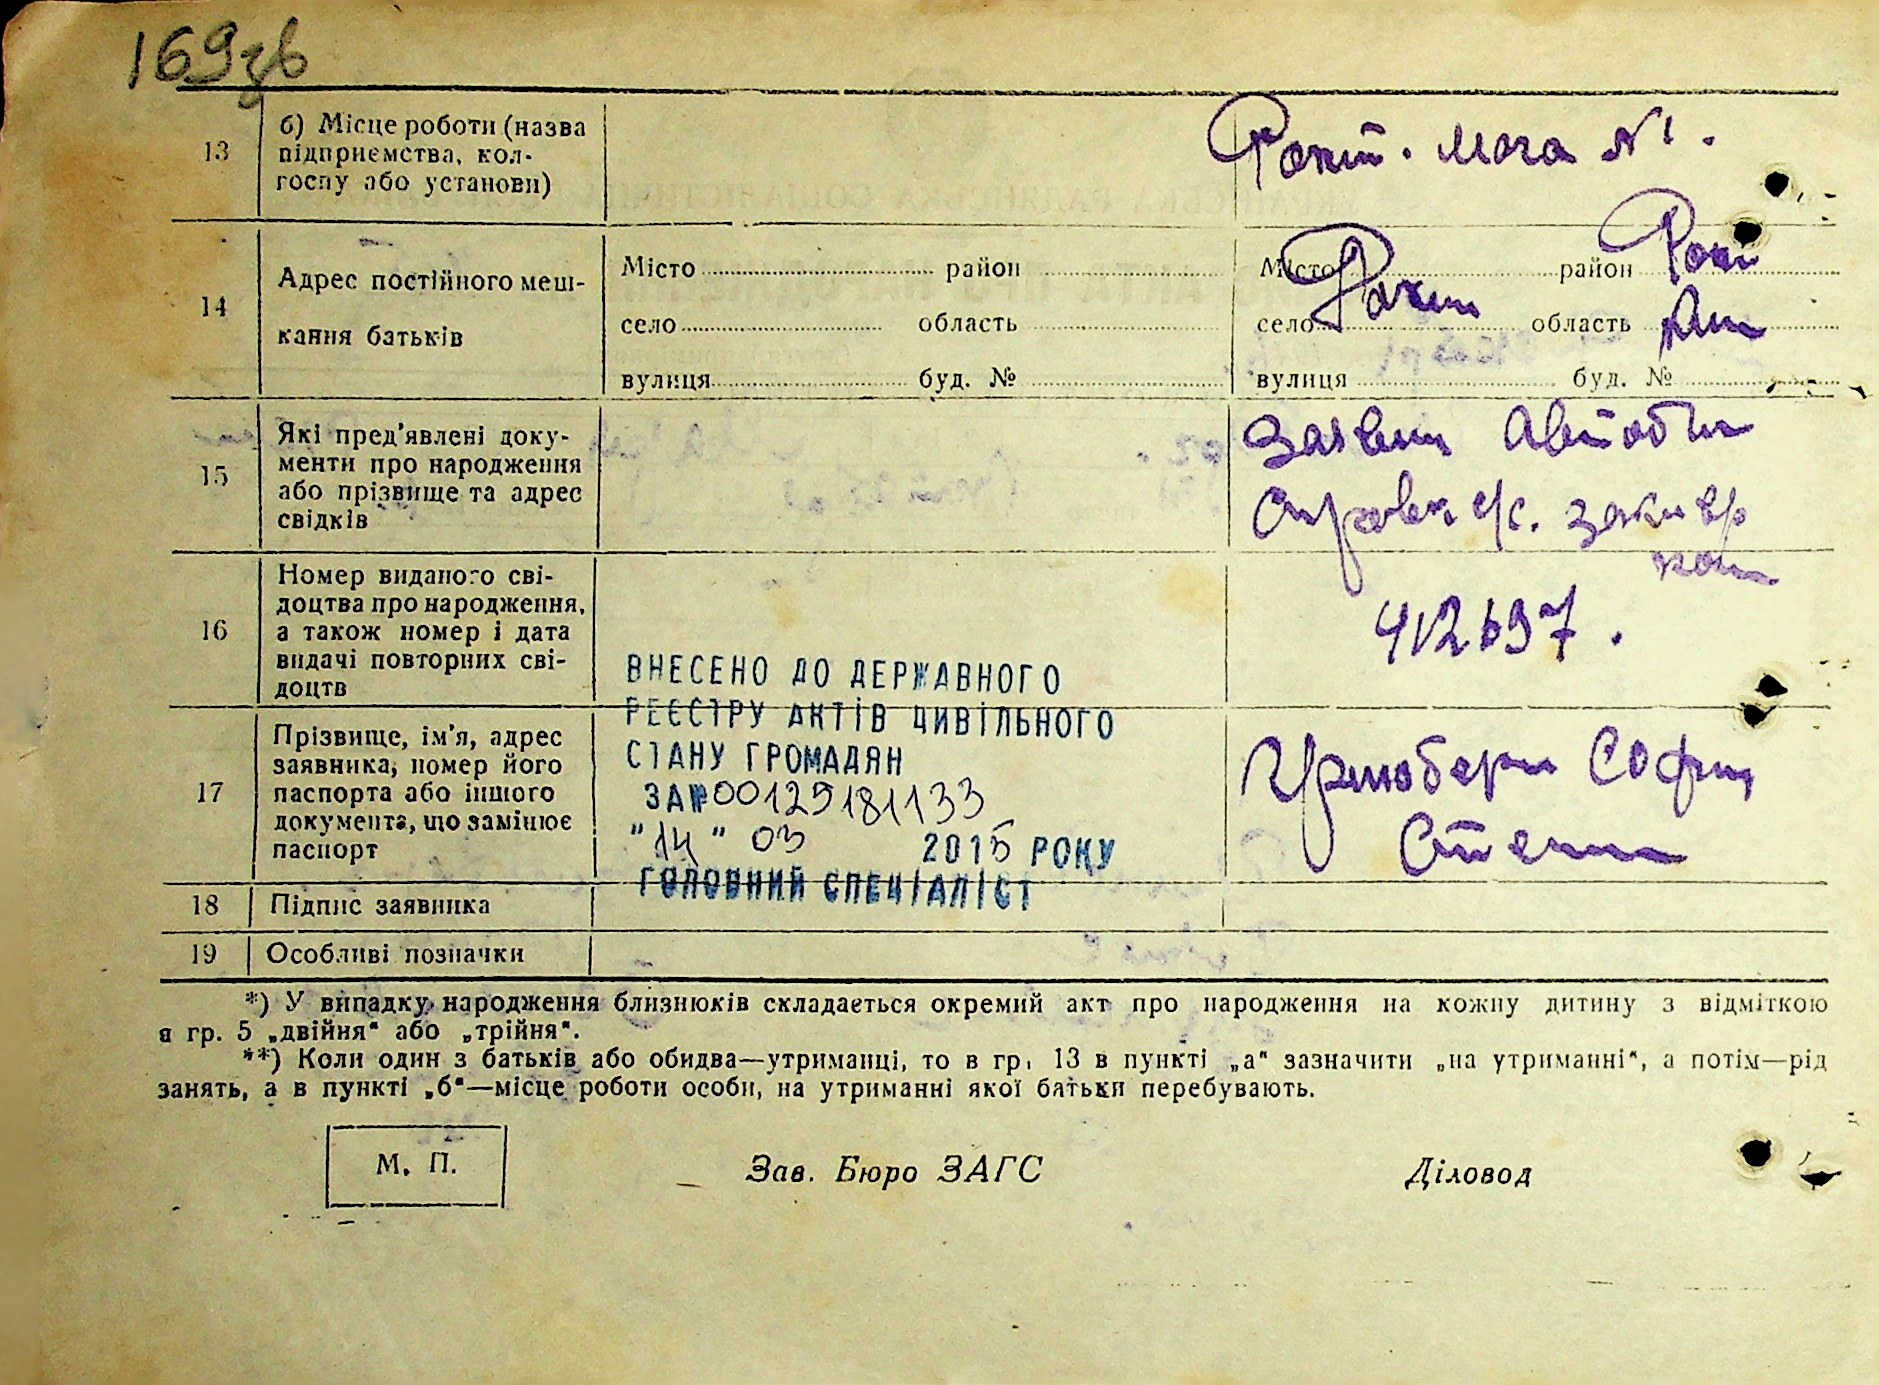 169зв
13
б) Місце роботи (назва
підприємства, кол-
госпу або установи)
14
Адрес постійного меш-
кання батьків
Місто район
село область
вулиця буд. №
Місто район
село область
вулиця буд. №
15
Які пред'явлені доку-
менти про народження
або прізвище та адрес
свідків
16
Номер виданого сві-
доцтва про народження,
а також номер і дата
видачі повторних сві-
доцтв
412697.
17
Прізвище, ім'я, адрес
заявника, номер його
паспорта або іншого
документа, що замінює
паспорт
ВНЕСЕНО ДО ДЕРЖАВНОГО
РЕЄСТРУ АКТІВ ЦИВІЛЬНОГО
СТАНУ ГРОМАДЯН
ЗА № 00129181133
"14" 03 2015 РОКУ
ГОЛОВНИЙ СПЕЦІАЛІСТ
18 Підпис заявника
19 Особливі позначки
*) У випадку народження близнюків складається окремий акт про народження на кожну дитину з відміткою
в гр. 5 „двійня“ або „трійня“.
**) Коли один з батьків або обидва—утриманці, то в гр. 13 в пункті „а“ зазначити „на утриманні“, а потім—рід
занять, а в пункті „б“—місце роботи особи, на утриманні якої батьки перебувають.
М. П.
Зав. Бюро ЗАГС
Діловод